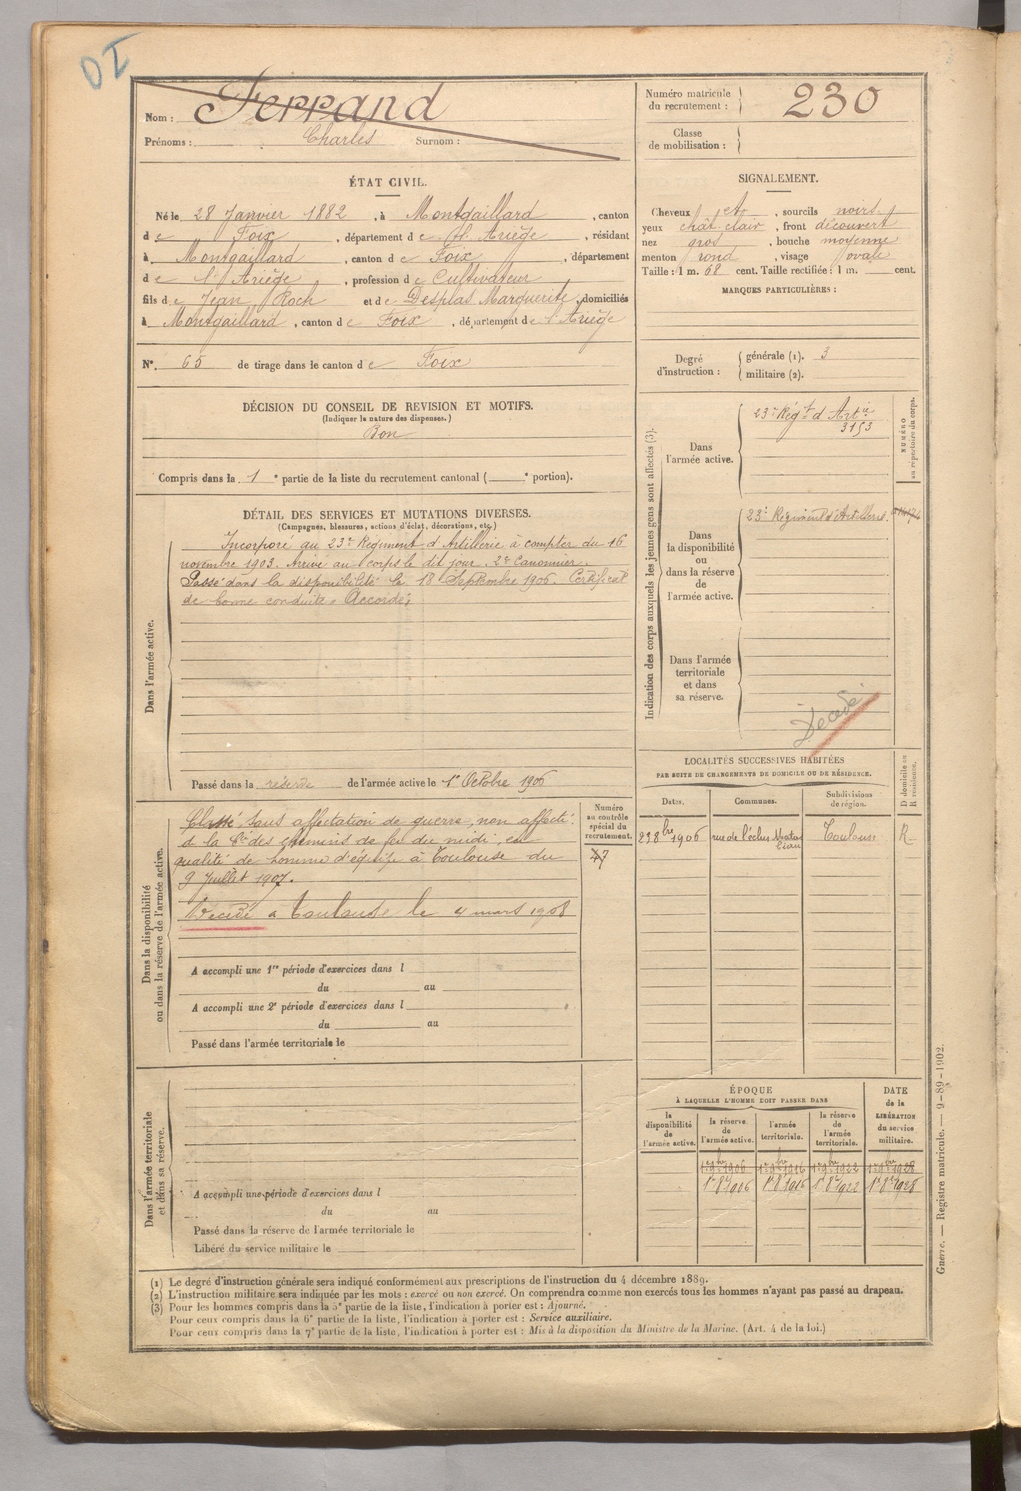 DI
Nom : Ferrand
Prénoms : Charles Surnom :
Numéro matricule du recrutement : 230
Classe de mobilisation :
ÉTAT CIVIL.
Né le 28 Janvier 1882, à Montgaillard, canton
de Foix, département de l'Ariège, résidant
à Montgaillard, canton de Foix, département
de l'Ariège, profession de Cultivateur
fils de Jean Roch et de Desplas Marguerite, domiciliés
à Montgaillard, canton de Foix, département de l'Ariège
N°. 65 de tirage dans le canton de Foix
SIGNALEMENT.
Cheveux et, sourcils noirs
yeux chât clair, front découvert
nez gros, bouche moyenne
menton rond, visage ovale
Taille : 1 m. 68 cent. Taille rectifiée : 1 m. cent.
MARQUES PARTICULIÈRES :
Degré d'instruction : générale (1). 3
militaire (2).
DÉCISION DU CONSEIL DE REVISION ET MOTIFS.
(Indiquer la nature des dispenses.)
Bon
Compris dans la 1e partie de la liste du recrutement cantonal ( e portion).
DÉTAIL DES SERVICES ET MUTATIONS DIVERSES.
(Campagnes, blessures, actions d'éclat, décorations, etc.)
Dans l'armée active.
Incorporé au 23e Régiment d'Artillerie à compter du 16
novembre 1903. Arrivé au corps le dit jour. 2e Canonnier.
Passé dans la disponibilité le 18 Septembre 1906. Certificat
de bonne conduite "Accordé"
Passé dans la réserve de l'armée active le 1er Octobre 1906
Indication des corps auxquels les jeunes gens sont affectés (3).
NUMÉRO au répertoire du corps.
Dans l'armée active.
23e Régt d'Artie
3153
Dans la disponibilité ou dans la réserve de l'armée active.
23e Régiment d'Artillerie
Dans l'armée territoriale et dans sa réserve.
Décédé
LOCALITÉS SUCCESSIVES HABITÉES
PAR SUITE DE CHANGEMENTS DE DOMICILE OU DE RÉSIDENCE.
Dates. Communes. Subdivisions de région. D domicile ou R résidence.
23 8bre 1906 rue de l'éclus Toulouse R.
Dans la disponibilité ou dans la réserve de l'armée active.
Numéro au contrôle spécial du recrutement.
47
Classé, sans affectation de guerre, non affecté
à la Cie des chemins de fer du midi, en
qualité de homme d'équipe à Toulouse du
9 Juillet 1907.
Décédé à Toulouse le 4 mars 1908
A accompli une 1re période d'exercices dans l
du au
A accompli une 2e période d'exercices dans l
du au
Passé dans l'armée territoriale le
Dans l'armée territoriale et dans sa réserve.
A accompli une période d'exercices dans l
du au
Passé dans la réserve de l'armée territoriale le
Libéré du service militaire le
ÉPOQUE
À LAQUELLE L'HOMME DOIT PASSER DANS
DATE de la LIBÉRATION du service militaire.
la disponibilité de l'armée active. la réserve de l'armée active. l'armée territoriale. la réserve de l'armée territoriale.
1er 9bre 1906 1er 9bre 1916 1er 9bre 1922 1er 9bre 1928
1er 8bre 1906 1er 8bre 1916 1er 8bre 1922 1er 8bre 1928
(1) Le degré d'instruction générale sera indiqué conformément aux prescriptions de l'instruction du 4 décembre 1889.
(2) L'instruction militaire sera indiquée par les mots : exercé ou non exercé. On comprendra comme non exercés tous les hommes n'ayant pas passé au drapeau.
(3) Pour les hommes compris dans la 5e partie de la liste, l'indication à porter est : Ajourné.
Pour ceux compris dans la 6e partie de la liste, l'indication à porter est : Service auxiliaire.
Pour ceux compris dans la 7e partie de la liste, l'indication à porter est : Mis à la disposition du Ministre de la Marine. (Art. 4 de la loi.)
Guerre. — Registre matricule. — 9-89-1902.